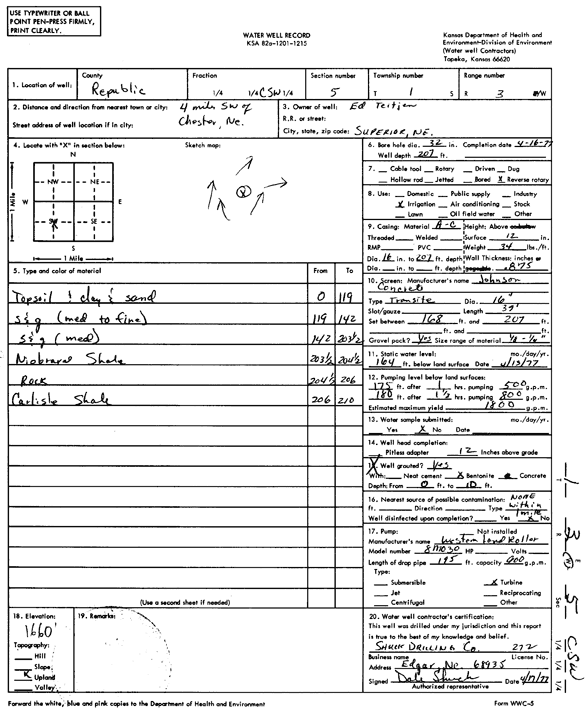 USE TYPEWRITER OR BALL
POINT PEN-PRESS FIRMLY,
PRINT CLEARLY.
WATER WELL RECORD
KSA 82a-1201-1215
Kansas Department of Health and
Environment-Division of Environment
(Water well Contractors)
Topeka, Kansas 66620
1. Location of well: County Republic Fraction 1/4 1/4 CSW 1/4 Section number 5 Township number T 1 S Range number R 3 E/W
2. Distance and direction from nearest town or city: 4 miles SW of
Chester, Ne.
Street address of well location if in city:
3. Owner of well: Ed Teitjen
R.R. or street:
City, state, zip code: SUPERIOR, NE.
4. Locate with "X" in section below:
Sketch map:
N
NW NE
W E
SW SE
S
1 Mile
1 Mile
6. Bore hole dia. 32 in. Completion date 4-16-77
Well depth 207 ft.
7. Cable tool Rotary Driven Dug
Hollow rod Jetted Bored X Reverse rotary
8. Use: Domestic Public supply Industry
X Irrigation Air conditioning Stock
Lawn Oil field water Other
9. Casing: Material A-C Height: Above or below
Threaded Welded Surface 12 in.
RMP PVC Weight 34 lbs./ft.
Dia. 16 in. to 207 ft. depth Wall Thickness: inches or
Dia. in. to ft. depth gage No. .875
5. Type and color of material From To
Topsoil & clay & sand 0 119
S&g (med to fine) 119 142
S&g (med) 142 203½
Niobrara Shale 203½ 204½
Rock 204½ 206
Carlisle Shale 206 210
10. Screen: Manufacturer's name Johnson
Concrete
Type Transite Dia. 16"
Slot/gauze Length 39'
Set between 168 ft. and 207 ft.
ft. and ft.
Gravel pack? yes Size range of material 1/8 - 1/4"
11. Static water level: mo./day/yr.
164 ft. below land surface Date 4/13/77
12. Pumping level below land surfaces:
175 ft. after 1 hrs. pumping 500 g.p.m.
180 ft. after 1½ hrs. pumping 800 g.p.m.
Estimated maximum yield 1800 g.p.m.
13. Water sample submitted: mo./day/yr.
Yes X No Date
14. Well head completion:
Pitless adapter 12 Inches above grade
15. Well grouted? yes
With: Neat cement X Bentonite Concrete
Depth: From 0 ft. to 10 ft.
16. Nearest source of possible contamination: None
ft. Direction Type within
1 mile
Well disinfected upon completion? Yes X No
17. Pump: Not installed
Manufacturer's name Western Land Roller
Model number 8M030 HP Volts
Length of drop pipe 195 ft. capacity 900 g.p.m.
Type:
Submersible X Turbine
Jet Reciprocating
Centrifugal Other
(Use a second sheet if needed)
18. Elevation:
1660'
Topography:
Hill
Slope
X Upland
Valley
19. Remarks:
20. Water well contractor's certification:
This well was drilled under my jurisdiction and this report
is true to the best of my knowledge and belief.
SHUCK DRILLING Co. 272
Business name License No.
Address Edgar, Ne. 68935
Signed Dale Shuck Date 4/17/77
Authorized representative
Forward the white, blue and pink copies to the Department of Health and Environment
Form WWC-5
1
R 3 W
Sec 5
CSW
1/4 1/4 1/4